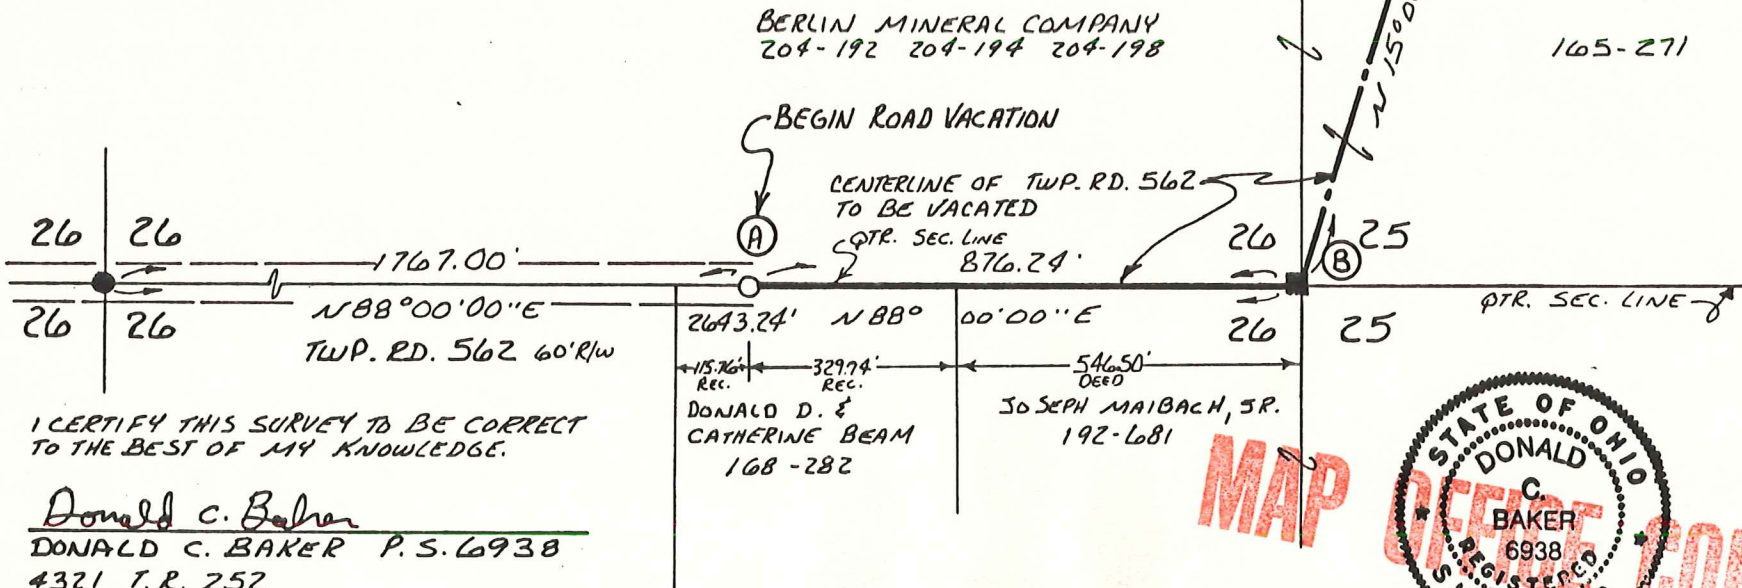 BERLIN MINERAL COMPANY
204-192 204-194 204-198
165-271
N 15°
BEGIN ROAD VACATION
CENTERLINE OF TWP. RD. 562
TO BE VACATED
QTR. SEC. LINE
A
B
26 26
26 25
1767.00'
876.24'
26 26
N 88°00'00"E
2643.24' N 88° 00'00"E
26 25
QTR. SEC. LINE
TWP. RD. 562 60' R/W
115.76' 329.74' 546.50'
REC. REC. DEED
DONALD D. &
CATHERINE BEAM
168-282
JOSEPH MAIBACH, JR.
192-681
I CERTIFY THIS SURVEY TO BE CORRECT
TO THE BEST OF MY KNOWLEDGE.
Donald C. Baker
DONALD C. BAKER P.S. 6938
4321 T.R. 252
MAP OFFICE
STATE OF OHIO
DONALD
C.
BAKER
6938
REGISTERED